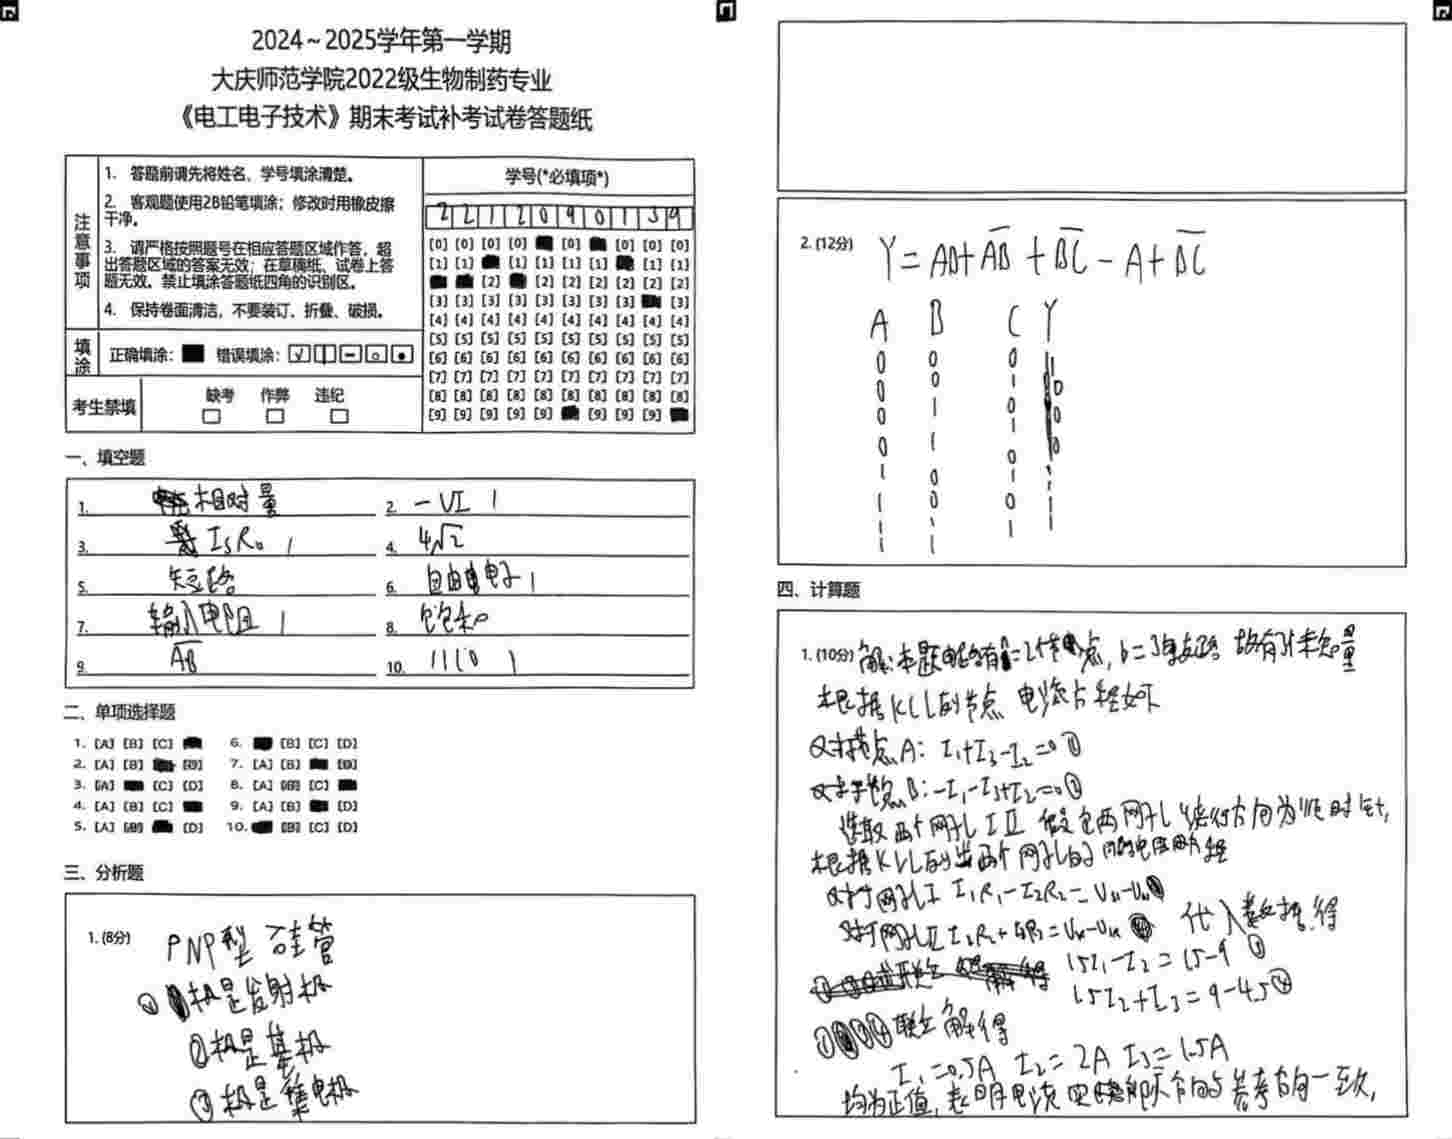 2024～2025学年第一学期
大庆师范学院2022级生物制药专业
《电工电子技术》期末考试补考试卷答题纸
注意事项
1. 答题前请先将姓名、学号填涂清楚。
2. 客观题使用2B铅笔填涂；修改时用橡皮擦
干净。
3. 请严格按照题号在相应答题区域作答，超
出答题区域的答案无效；在草稿纸、试卷上答
题无效。禁止填涂答题纸四角的识别区。
4. 保持卷面清洁，不要装订、折叠、破损。
填涂
正确填涂： 错误填涂：
考生禁填
缺考 作弊 违纪
学号(*必填项*)
2 2 1 2 0 9 0 1 3 9
[0] [0] [0] [0] [0] [0] [0] [0]
[1] [1] [1] [1] [1] [1] [1] [1]
[2] [2] [2] [2] [2] [2] [2]
[3] [3] [3] [3] [3] [3] [3] [3] [3]
[4] [4] [4] [4] [4] [4] [4] [4] [4] [4]
[5] [5] [5] [5] [5] [5] [5] [5] [5] [5]
[6] [6] [6] [6] [6] [6] [6] [6] [6] [6]
[7] [7] [7] [7] [7] [7] [7] [7] [7] [7]
[8] [8] [8] [8] [8] [8] [8] [8] [8] [8]
[9] [9] [9] [9] [9] [9] [9] [9]
一、填空题
1. 相对量 2. -UI
3. ISR0 4. 4√2
5. 短路 6. 自由电子
7. 输入电阻 8. 饱和
9. A̅B̅ 10. 1110
二、单项选择题
1. [A] [B] [C] 6. [B] [C] [D]
2. [A] [B] [D] 7. [A] [B] [D]
3. [A] [C] [D] 8. [A] [B] [C]
4. [A] [B] [C] 9. [A] [B] [D]
5. [A] [B] [D] 10. [B] [C] [D]
三、分析题
1. (8分)
PNP型 硅管
极是发射极
②极是基极
③极是集电极
2. (12分) Y=AB+A̅B̅+B̅C̅-A+B̅C̅
A B C Y
0 0 0 1
0 0 1 0
0 1 0 0
0 1 1 0
1 0 0 1
1 0 0 1
1 1 1 1
四、计算题
1. (10分) 解：本题电路有 =2个节点，b=3条支路 故有3个未知量
根据KCL列节点 电流方程如下
对节点A：I₁+I₃-I₂=0 ①
对于节点B：-I₁-I₃+I₂=0②
选取两个网孔 I II 假定两网孔绕行方向为顺时针，
根据KVL列出两个网孔的 电压方程
对于网孔I I₁R₁-I₂R₂=
对于网孔II I₂R₂+
代入数据，得
15I₁-I₂=15-9 ③
1.5I₂+I₃=9-4.5④
联立解得
I₁=0.5A I₂=2A I₃=1.5A
均为正值，表明电流实际方向与参考方向一致，